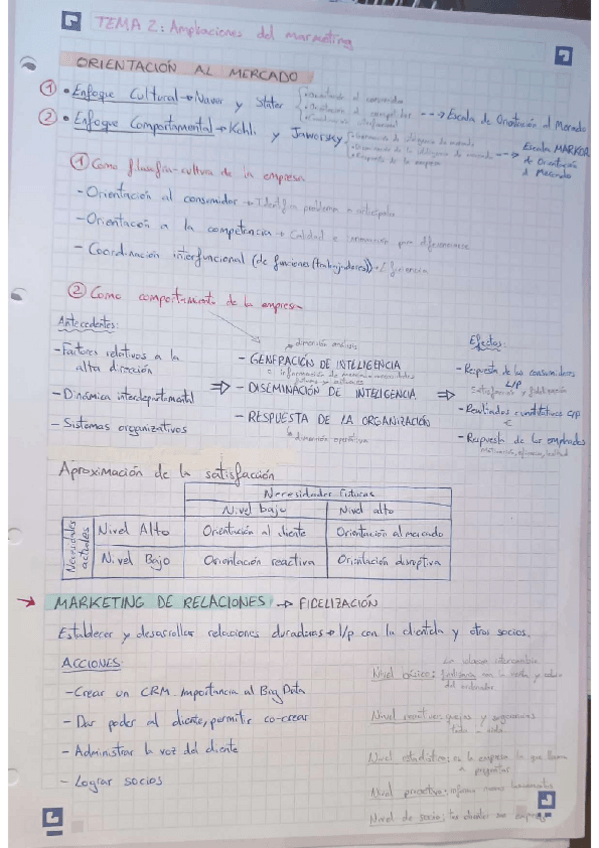 TEMA 2: Ampliaciones del marketing
ORIENTACIÓN AL MERCADO
① • Enfoque Cultural → Naver y Slater { • Orientación al consumidor • Orientación al competidor • Coordinación --→ Escala de Orientación al Mercado
② • Enfoque Comportamental → Kohli y Jaworsky --→ Escala MARKOR de Orientación al Mercado
① Como filosofía-cultura de la empresa
- Orientación al consumidor → Identifica problemas
- Orientación a la competencia → Calidad e para diferenciarse
- Coordinación interfuncional (de funciones (trabajadores)) → Eficiencia
② Como comportamiento de la empresa
Antecedentes:
- Factores relativos a la alta dirección
- Dinámica interdepartamental
- Sistemas organizativos
dimensión análisis
- GENERACIÓN DE INTELIGENCIA
⇒ - DISEMINACIÓN DE INTELIGENCIA ⇒
- RESPUESTA DE LA ORGANIZACIÓN
dimensión operativa
Efectos:
- Respuesta de los consumidores
L/P
- Resultados
- Respuesta de los empleados
Aproximación de la satisfacción
Necesidades Futuras
Nivel bajo Nivel alto
Necesidades actuales
Nivel Alto Orientación al cliente Orientación al mercado
Nivel Bajo Orientación reactiva Orientación disruptiva
→ MARKETING DE RELACIONES → FIDELIZACIÓN
Establecer y desarrollar relaciones duraderas → l/p con la clientela y otros socios.
ACCIONES:
- Crear un CRM. Importancia al Big Data
- Dar poder al cliente, permitir co-crear
- Administrar la voz del cliente
- Lograr socios
Nivel básico:
del ordenador
Nivel reactivo: quejas y sugerencias
Nivel estadístico: es la empresa la que llama a preguntar
Nivel proactivo: informa nuevos lanzamientos
Nivel de socio: tus clientes son